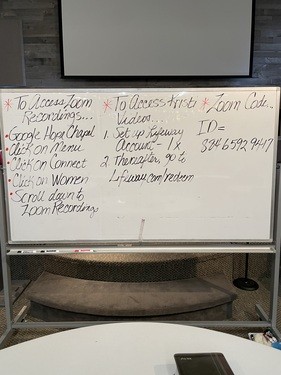 * To Access Zoom
Recordings...
• Google Hope Chapel
• Click on Menu
• Click on Connect
• Click on Women
• Scroll down to
Zoom Recordings
* To Access
Videos...
1. Set up Lifeway
Account - 1x
2. Thereafter, go to
Lifeway.com/redeem
* Zoom Code...
ID =
384 6592 9417